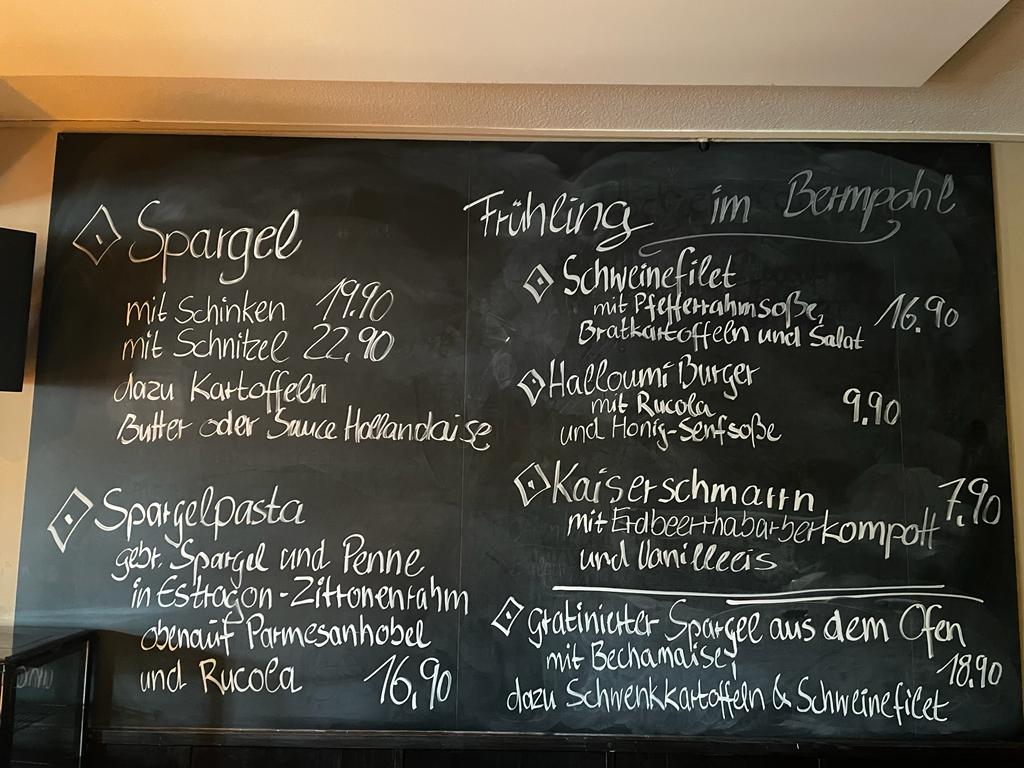 Spargel
mit Schinken 19.90
mit Schnitzel 22.90
dazu Kartoffeln
Butter oder Sauce Hollandaise
Spargelpasta
gebr. Spargel und Penne
in Estragon-Zitronenrahm
obenauf Parmesanhobel
und Rucola 16,90
Frühling im Bermpohl
Schweinefilet
mit Pfefferrahmsoße, 16.90
Bratkartoffeln und Salat
Halloumi Burger
mit Rucola 9.90
und Honig-Senfsoße
Kaiserschmarrn 7.90
mit Erdbeerrhabarberkompott
und Vanilleeis
gratinierter Spargel aus dem Ofen
mit Bechamaise, 18.90
dazu Schwenkkartoffeln & Schweinefilet